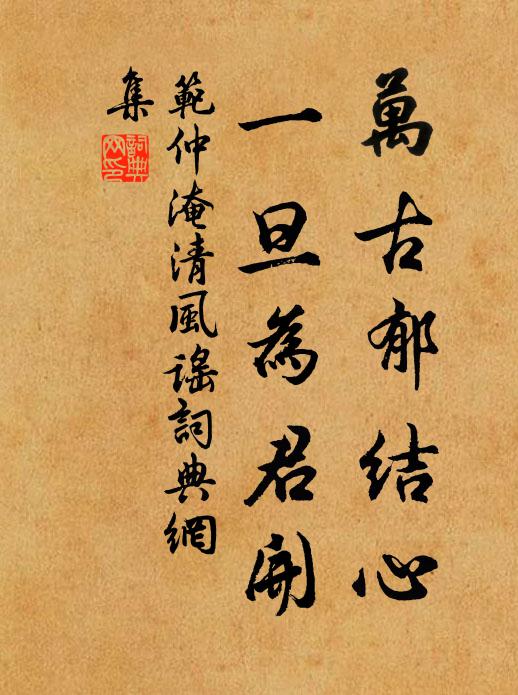 萬古郁結心
一旦為君開
範仲淹清風謠詞典網
集
詞典
网印